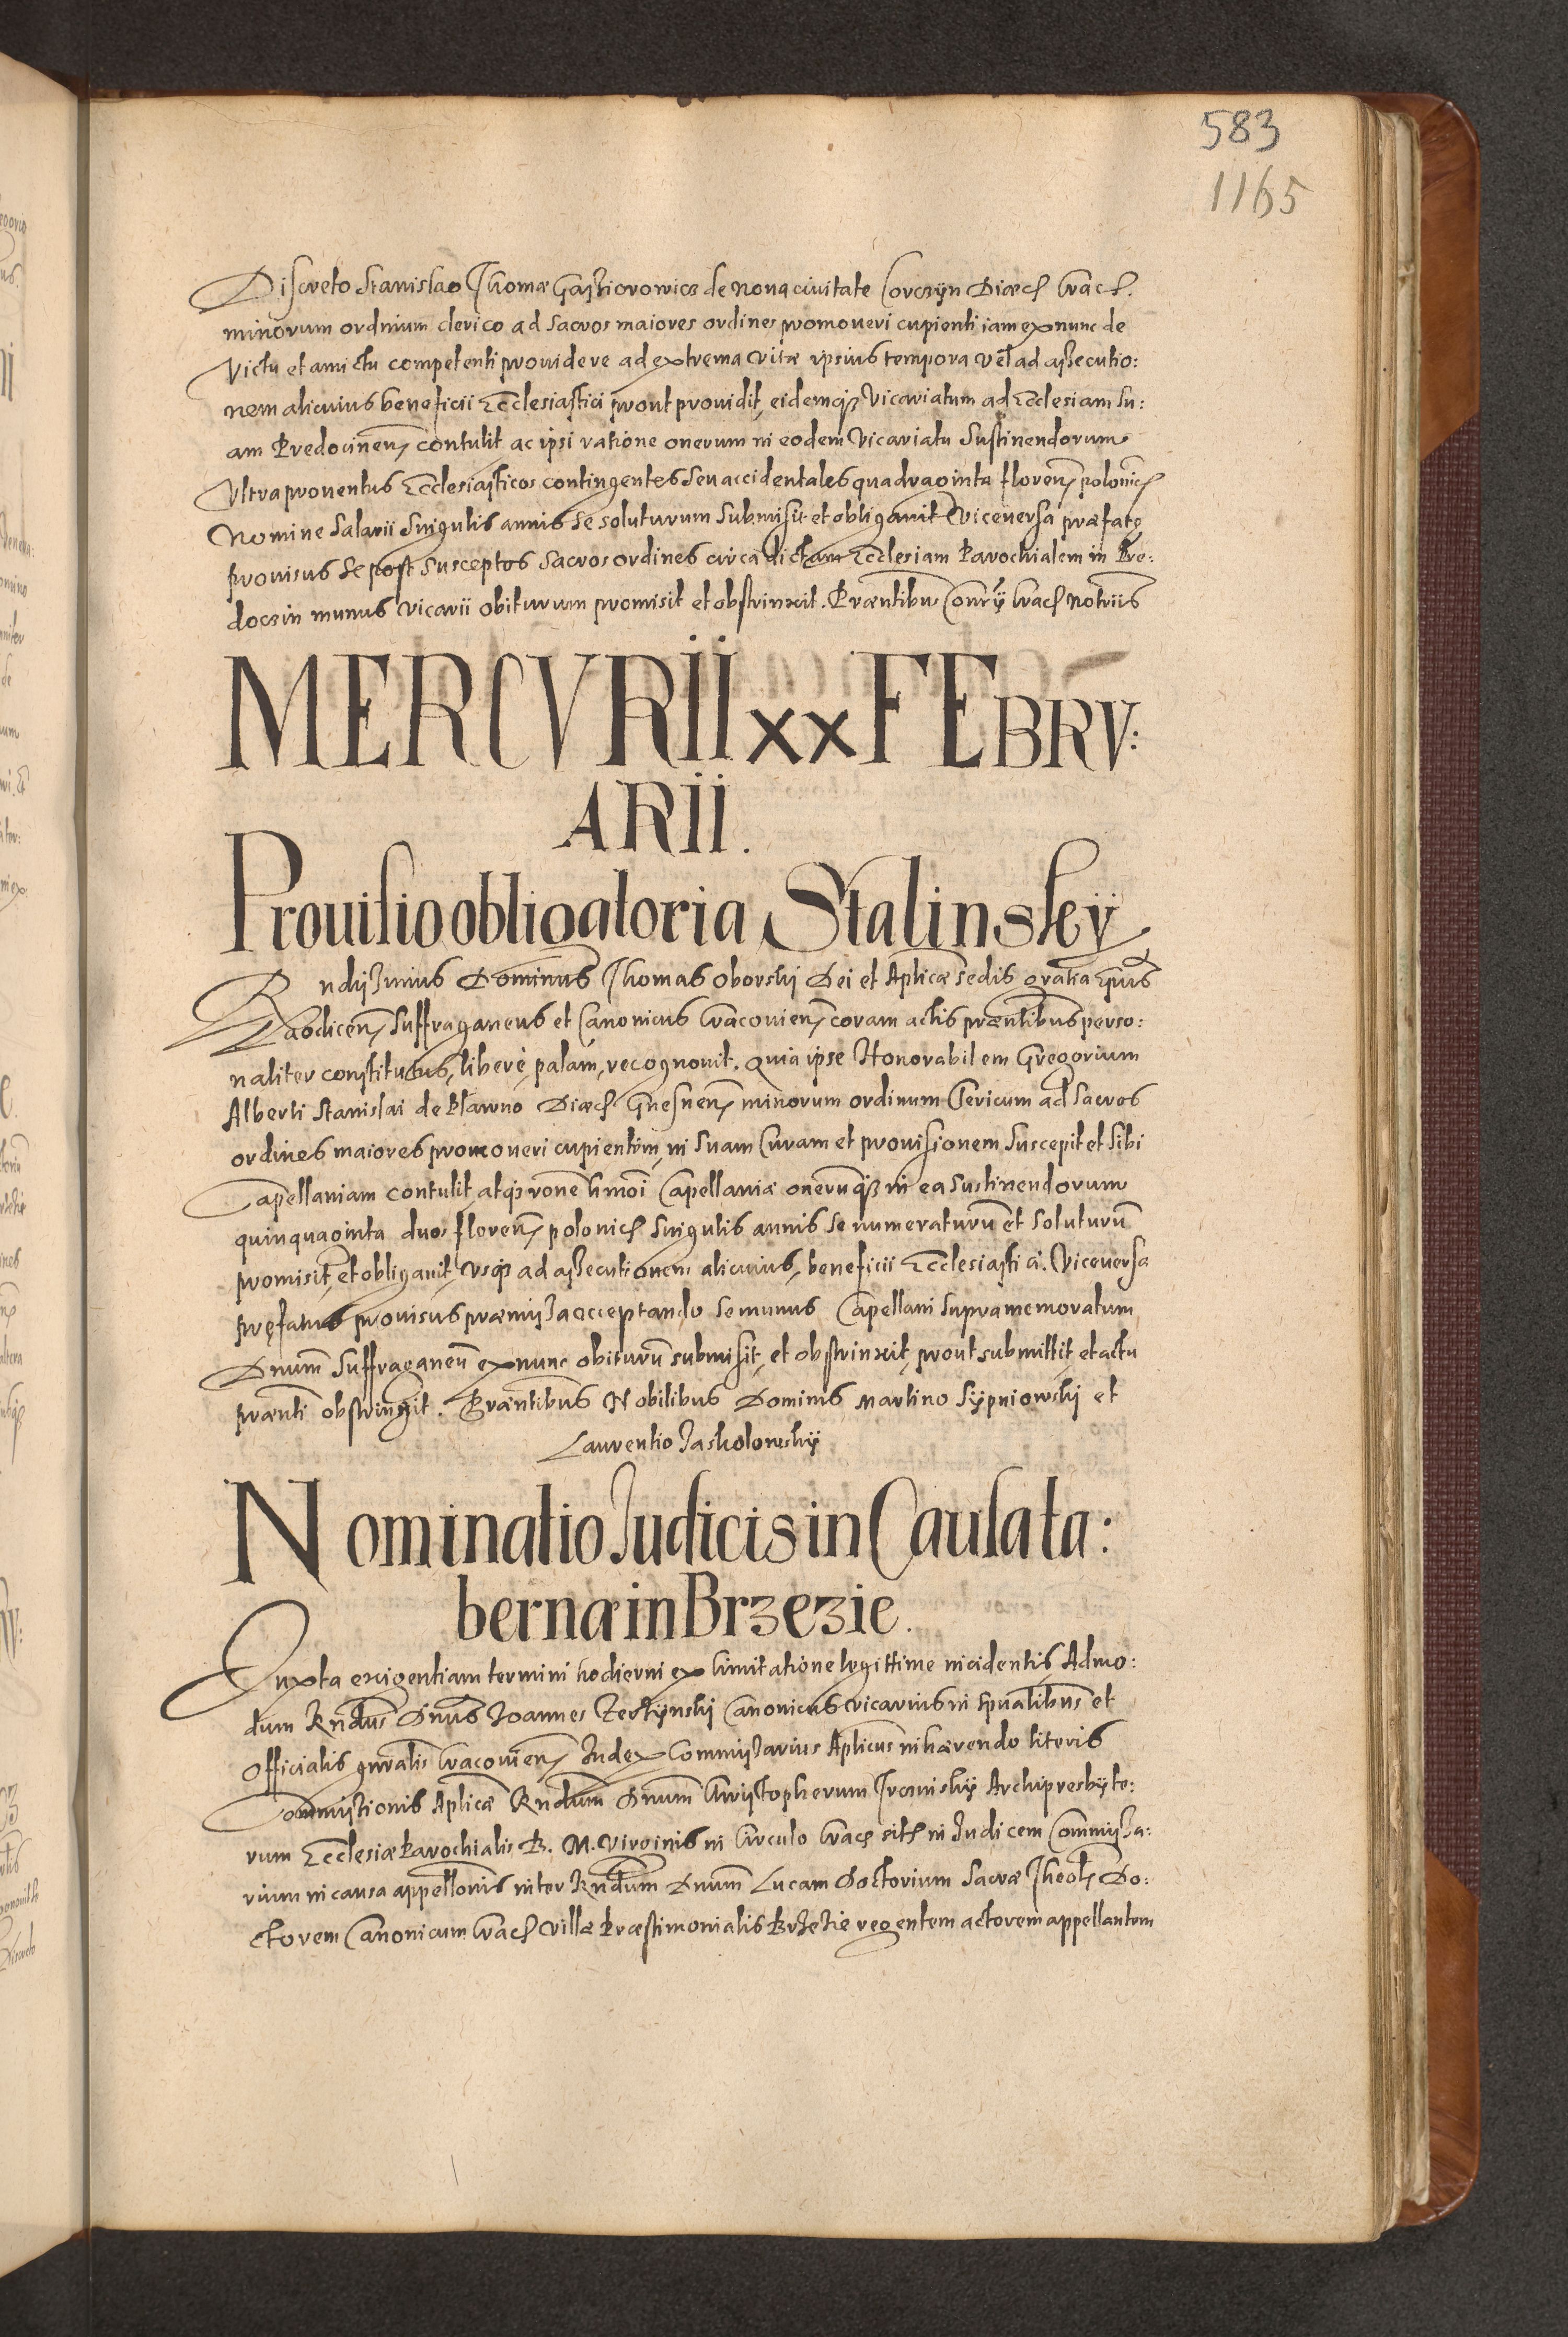 583
1165
Discreto Stanislao Thomæ Gasziorowicz de Noua ciuitate Corczÿn Diæc. Crac.
minorum ordinium clerico ad sacros maiores ordines promoueri cupienti iam ex nunc de
Victu et amictu competenti prouidere ad extrema vitæ ipsius tempora vel ad assecutio:
nem alicuius beneficii Ecclesiastici prout prouidit, eidemq3 Vicariatum ad Ecclesiam su:
am Predocinen contulit ac ipsi ratione onerum in eodem Vicariatu sustinendorum
Vltra prouentus Ecclesiasticos contingentes seu accidentales quadraginta floren polonic
Nomine salarii singulis annis se soluturum submisit et obligauit Viceuersa præfatq
prouisus se post susceptos sacros ordines circa dictam Ecclesiam Parochialem in Pre:
doczin munus vicarii obiturum promisit et obstrinxit. Præntibus Conrÿ Crac Notriis
MERCVRII XX FEBRV:
ARII.
Prouisio obligatoria Stalinskÿ
Rndissimus Dominus Thomas Oborski Dei et Aplicæ sedis gratia Epus
Laodicen Suffraganeus et Canonicus Cracouien coram actis præntibus perso:
naliter constitutus, liberè, palam, recognouit. Quia ipse Honorabilem Gregorium
Alberti Stanislai de Plawno Diæc Gnesnen minorum ordinum Clericum ad sacros
ordines maiores promoueri cupientem, in suam curam et prouisionem suscepit et sibi
Capellaniam contulit, atq3 rone hmoi Capellaniæ onerumq3 in ea sustinendorum
quinquaginta duos floren polonic singulis annis se numeraturu et soluturu
promisit, et obligauit, vsq3 ad assecutionem alicuius, beneficii Ecclesiastici. Viceuersa
pręfatus prouisus præmissa acceptando se munus Capellani supra memoratum
Dnum Suffraganeu ex nunc obituru submisit, et obstrinxit, prout submittit et actu
prænti obstringit. Præntibus Nobilibus Dominis Martino Sÿpniowski et
Laurentio Jaskolowskÿ
Nominatio Judicis in Causa ta:
bernæ in Brzezie.
Juxta exigentiam termini hodierni ex limitatione legittime incidentis Admo:
dum Rndus Dnus Joannes Canonicus vicarius in spualibus et
Officialis gnralis Cracouien Judex Commissarius Aplicus inhærendo literis
Commissionis Aplicæ Rndum Dnum Christopherum Archipresbÿte:
rum Ecclesiæ Parochialis B. M. Virginis in Circulo Crac sitæ in Judicem Commissa:
rium in causa appellonis inter Rndum Dnum Lucam Doctorium Sacræ Theol Do:
ctorem Canonicum Crac villæ Præstimonialis Brzezie regentem actorem appellantem